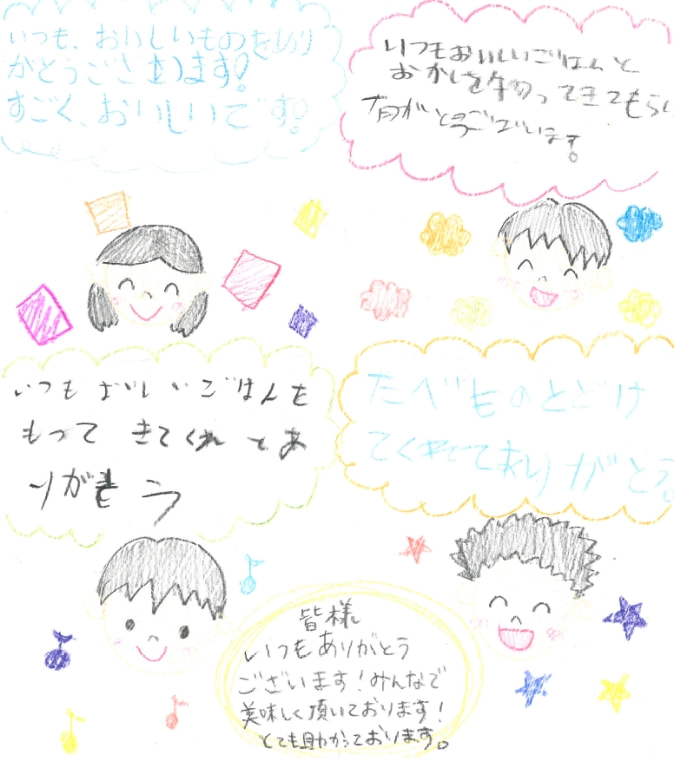 いつも、おいしいものをあり
がとうございます!
すごく、おいしいです。
いつもおいしいごはんと
おかしを持ってきてもらい
有がとうございます。
いつもおいしいごはんを
もってきてくれとあ
りがとう
たべものとどけ
てくれてありがとう。
皆様
いつもありがとう
ございます!みんなで
美味しく頂いております!
とても助かっております。